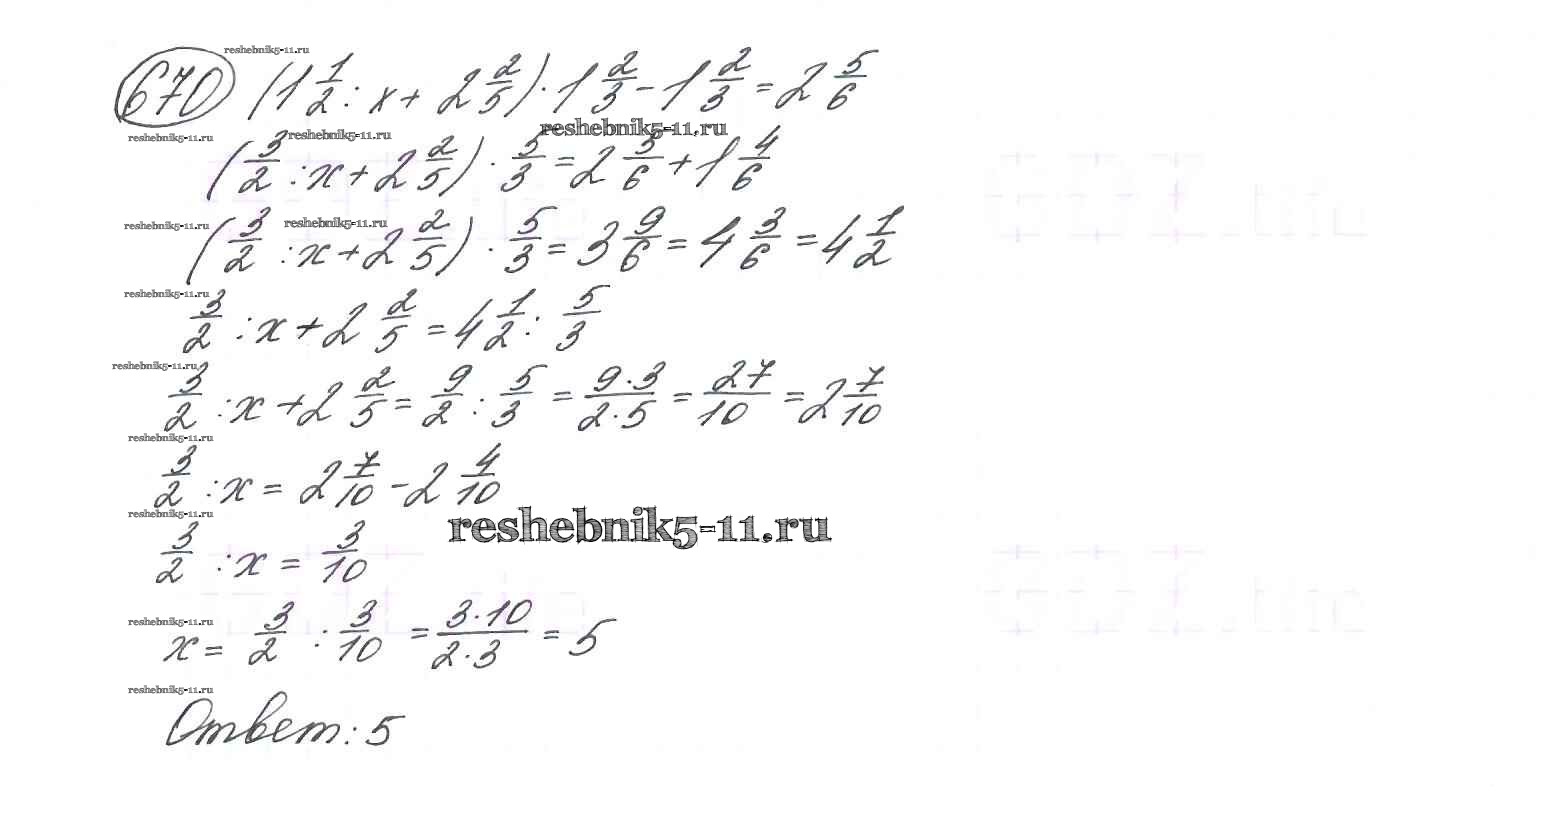 reshebnik5-11.ru
670 (1 1/2 : x + 2 2/5) · 1 2/3 - 1 2/3 = 2 5/6
reshebnik5-11.ru reshebnik5-11.ru reshebnik5-11.ru
(3/2 : x + 2 2/5) · 5/3 = 2 5/6 + 1 4/6
reshebnik5-11.ru reshebnik5-11.ru
(3/2 : x + 2 2/5) · 5/3 = 3 9/6 = 4 3/6 = 4 1/2
reshebnik5-11.ru
3/2 : x + 2 2/5 = 4 1/2 : 5/3
reshebnik5-11.ru
3/2 : x + 2 2/5 = 9/2 : 5/3 = 9·3/2·5 = 27/10 = 2 7/10
reshebnik5-11.ru
3/2 : x = 2 7/10 - 2 4/10
reshebnik5-11.ru reshebnik5-11.ru
3/2 : x = 3/10
reshebnik5-11.ru
x = 3/2 : 3/10 = 3·10/2·3 = 5
reshebnik5-11.ru
Ответ: 5